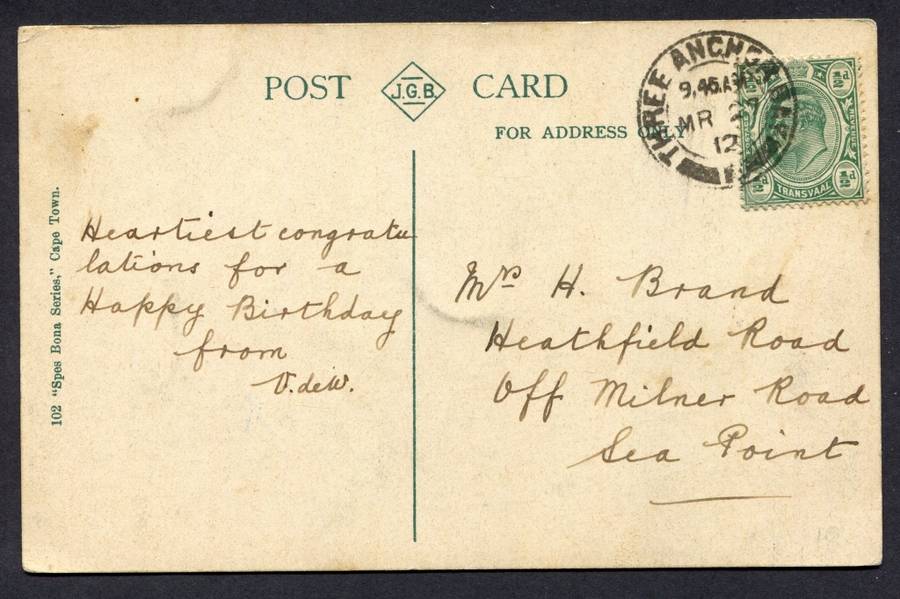 POST J.G.B. CARD
FOR ADDRESS ONLY
THREE ANCHOR BAY
9.45.AM
MR 2
12
½d ½d
½d ½d
TRANSVAAL
102 "Spes Bona Series," Cape Town.
Heartiest congratu
lations for a
Happy Birthday
from
V. de W.
Mrs H. Brand
Heathfield Road
Off Milner Road
Sea Point